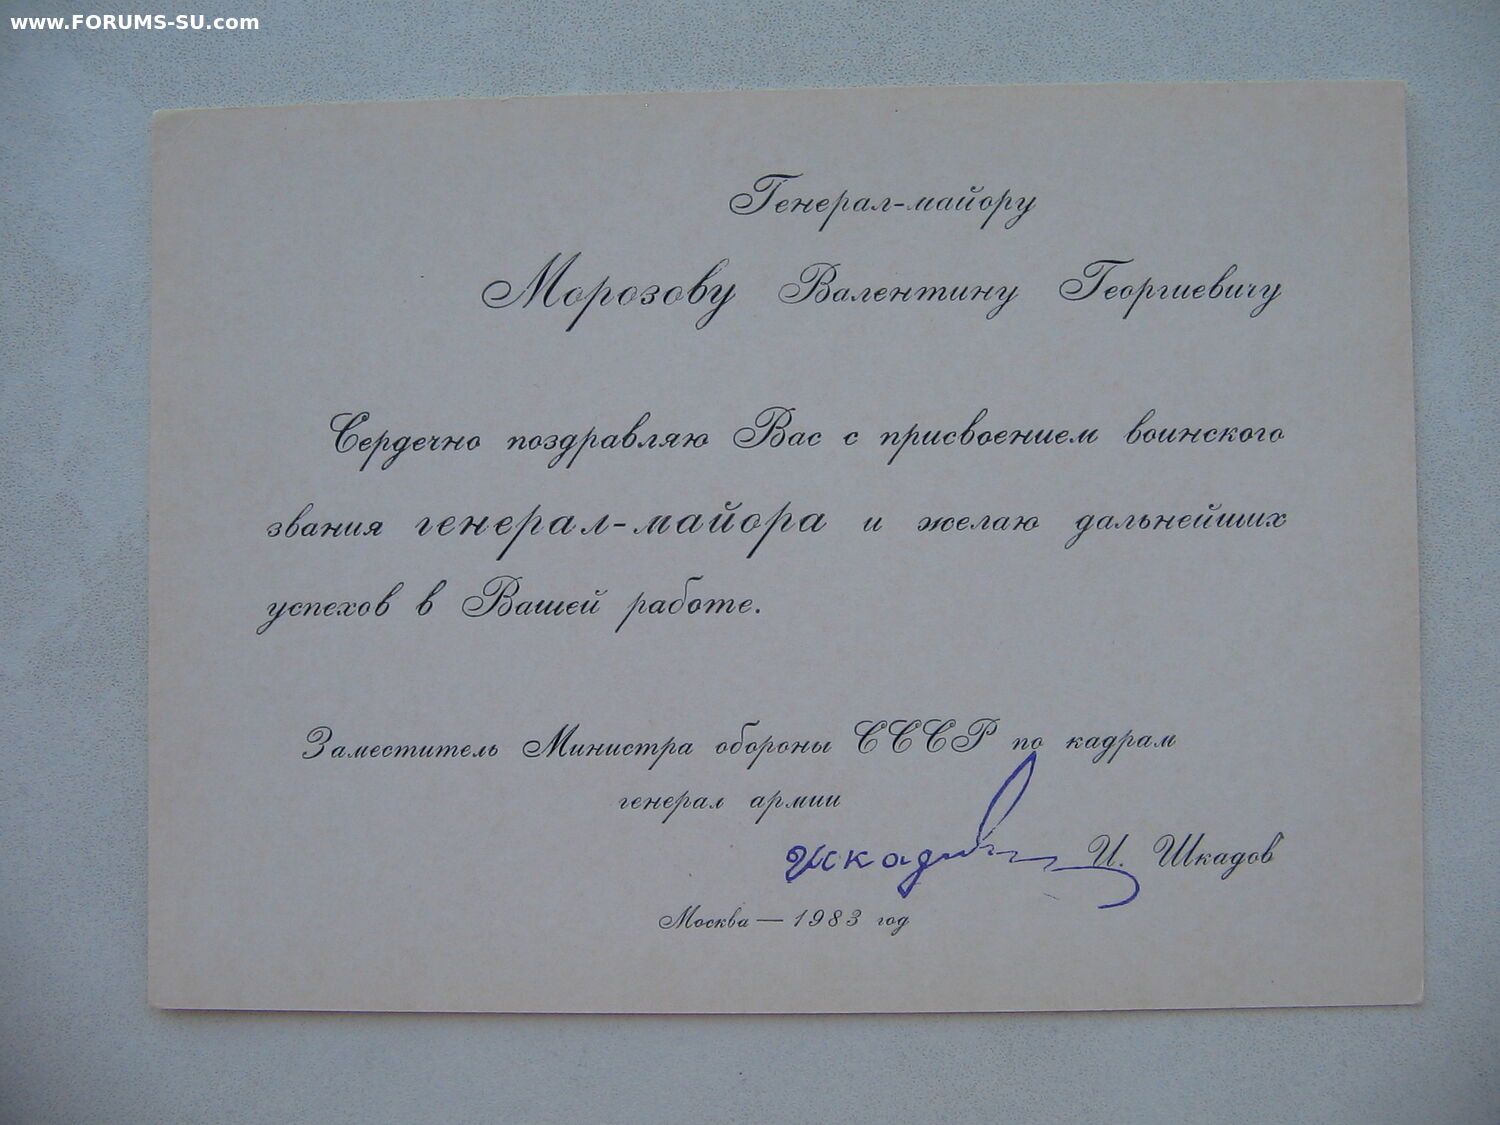 www.FORUMS-SU.com
Генерал-майору
Морозову Валентину Георгиевичу
Сердечно поздравляю Вас с присвоением воинского
звания генерал-майора и желаю дальнейших
успехов в Вашей работе.
Заместитель Министра обороны СССР по кадрам
генерал армии
Шкадов И. Шкадов
Москва — 1983 год